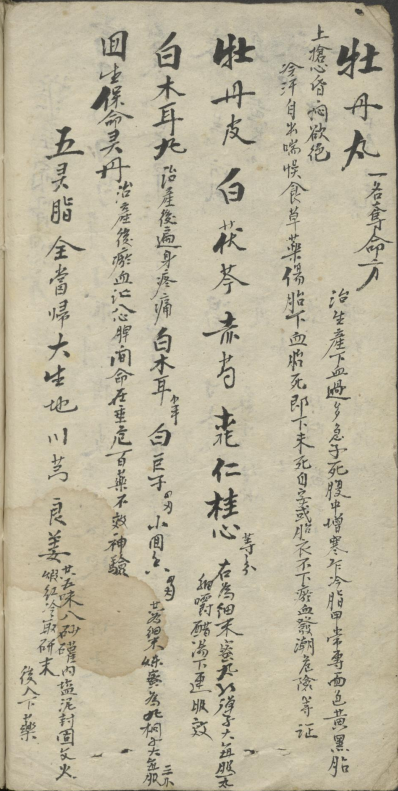 牡丹丸 一名奪命方
治生產下血過多急子死腹中增寒乍冷脂甲青面色黃黑胎
上搶心昏悶欲絕
冷汗自出喘悞食草藥傷胎下血胎死即下未死自安或胎衣不下瘀血發潮危險等证
牡丹皮 白茯苓 赤芍 桃仁 桂心 等分
右為細末蜜丸彈子大每服一丸
細嚼醋湯下連服效
白木耳丸 治產後遍身疼痛 白木耳 半斤 白巨子 四刄 小回 四刄
共為細末煉蜜為丸桐子大每服二三
回生保命灵丹 治產後瘀血汇入心脾间命在垂危百藥不效神驗
五灵脂 全當歸 大生地 川芎 良姜
廿五味入砂礶內盐泥封固文火
煅紅冷取研末
後入下藥